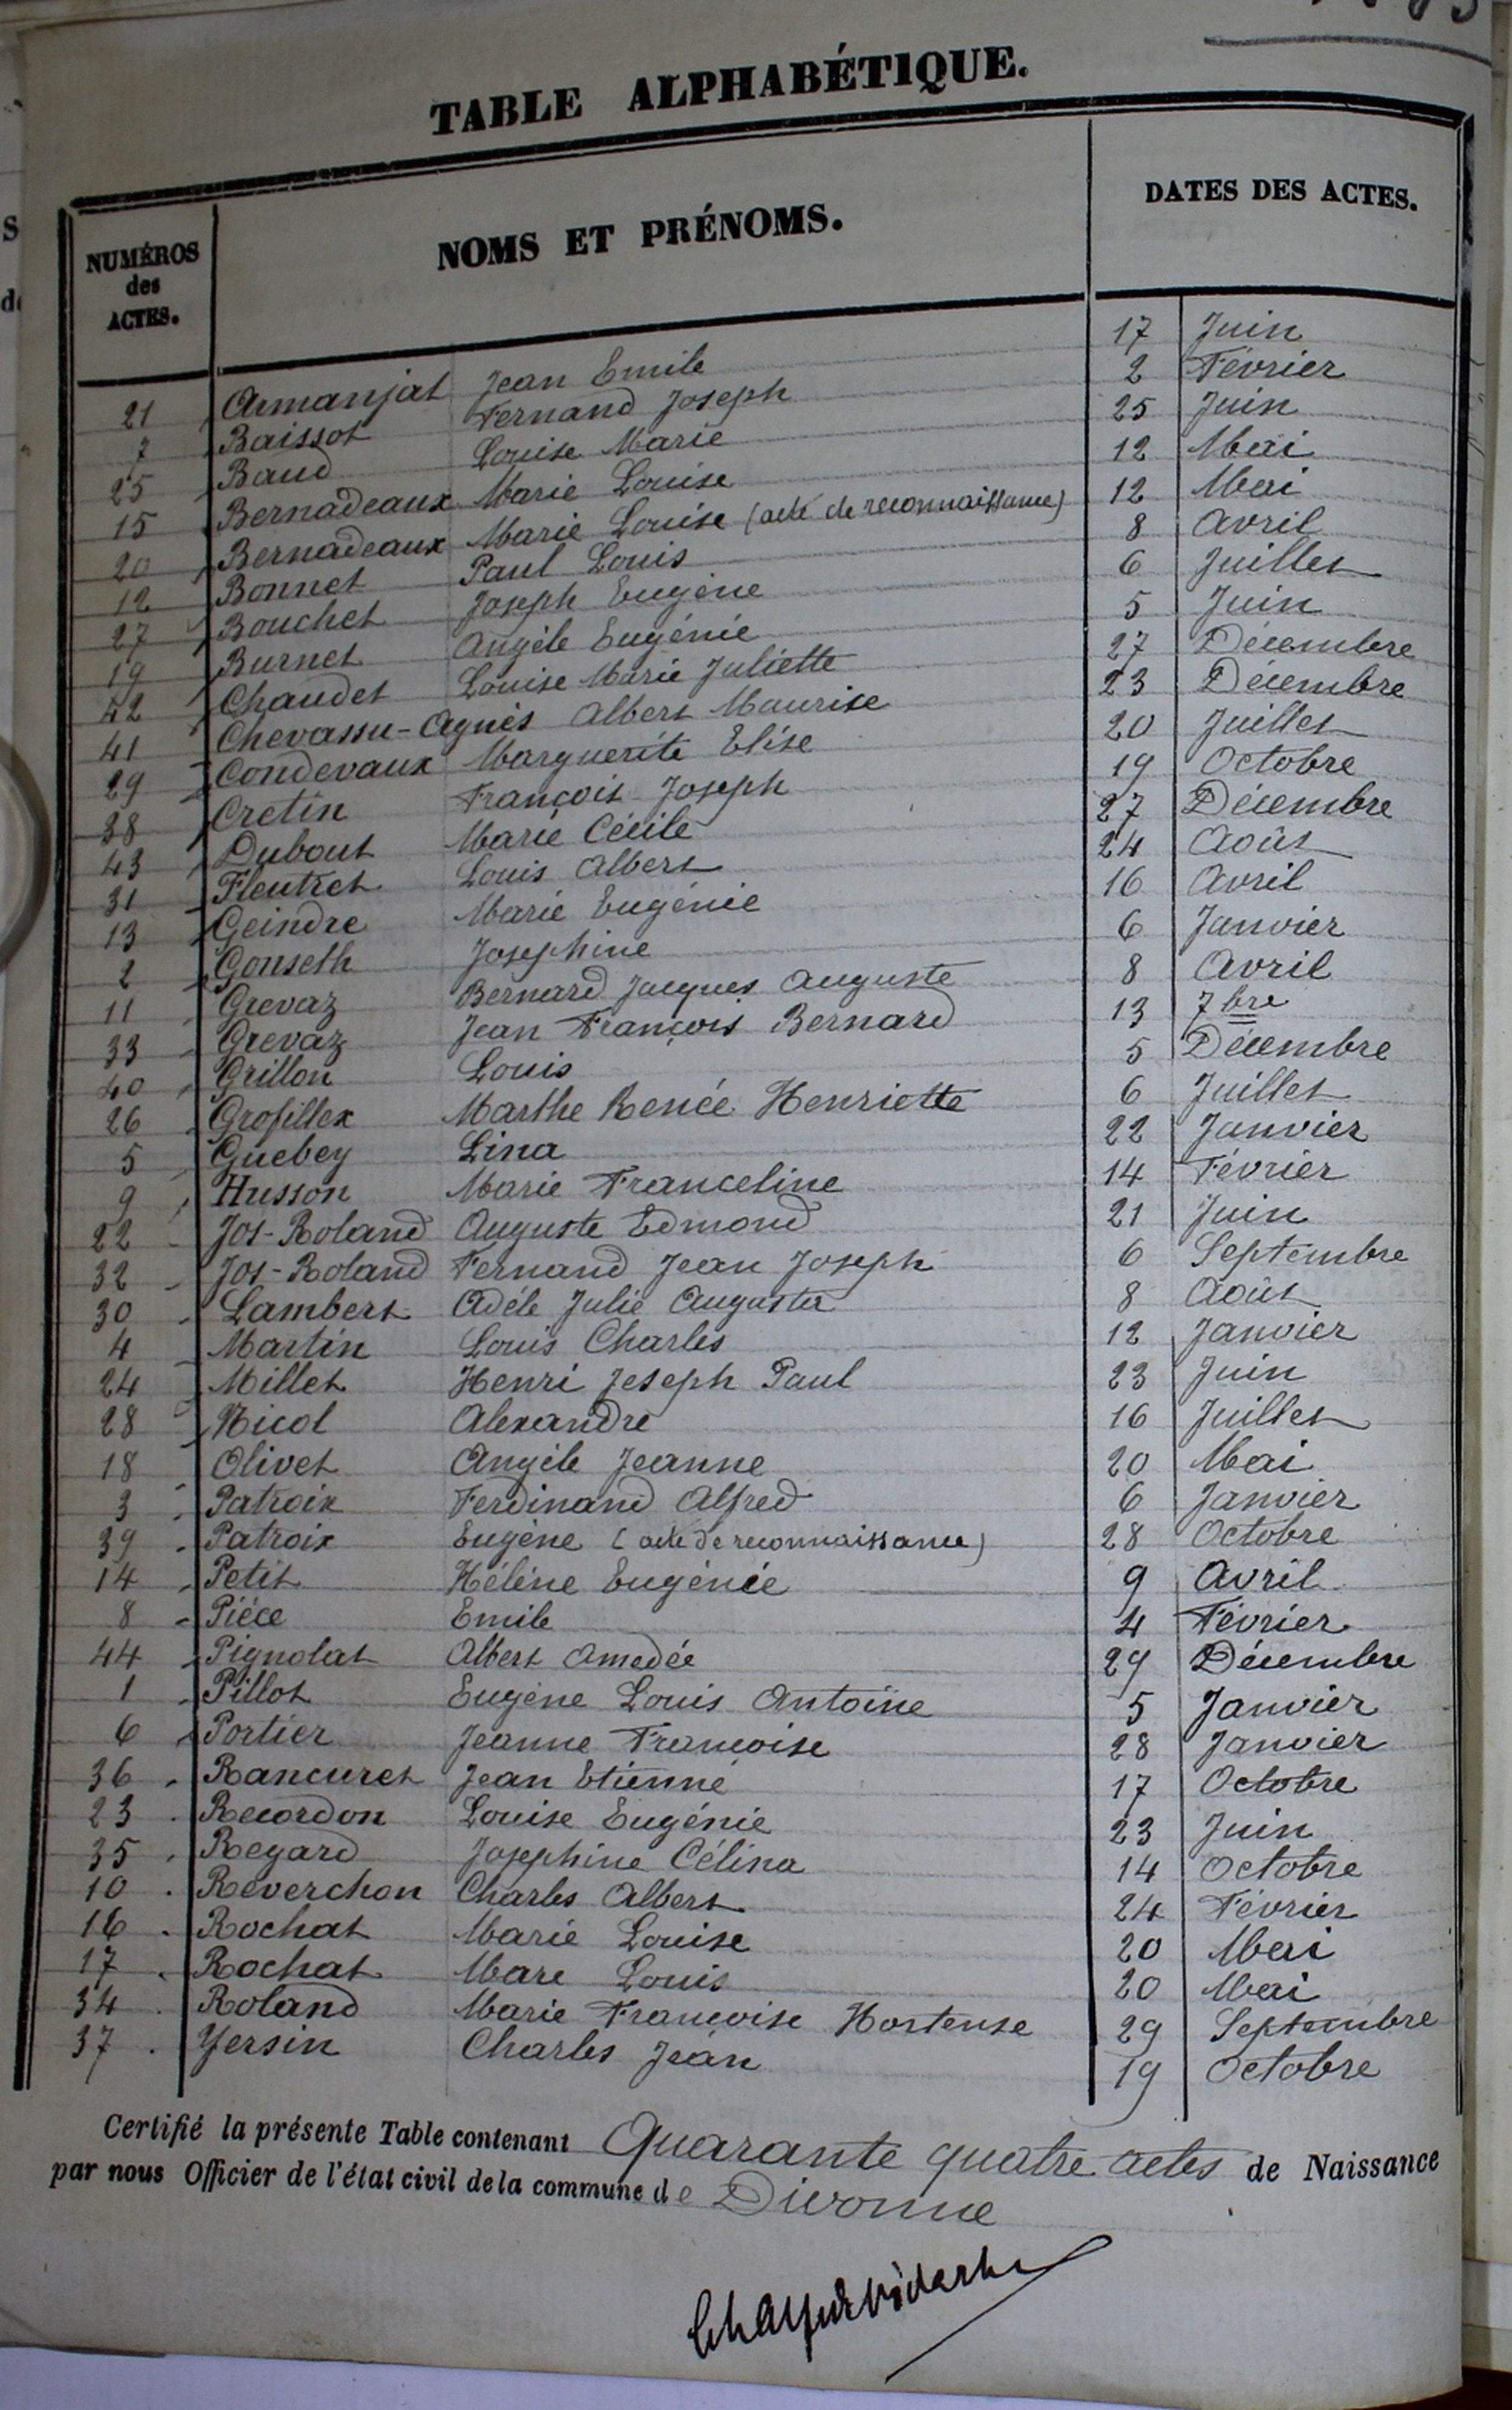 TABLE ALPHABÉTIQUE.
NUMÉROS des ACTES. NOMS ET PRÉNOMS. DATES DES ACTES.
21 Armanjat Jean Emile 17 Juin
7 Baissot Fernand Joseph 2 Février
25 Baud Louise Marie 25 Juin
15 Bernadeaux Marie Louise 12 Mai
20 Bernadeaux Marie Louise (acte de reconnaissance) 12 Mai
12 Bonnet Paul Louis 8 Avril
27 Bouchet Joseph Eugène 6 Juillet
19 Burnet Angèle Eugénie 5 Juin
42 Chaudet Louise Marie Juliette 27 Décembre
41 Chevassu-Agnès Albert Maurise 23 Décembre
29 Condevaux Marguerite Elise 20 Juillet
38 Cretin François Joseph 19 Octobre
43 Dubout Marie Cécile 27 Décembre
31 Fleutret Louis Albert 24 Août
13 Geindre Marie Eugénie 16 Avril
2 Gonseth Josephine 6 Janvier
11 Grevaz Bernard Jacques Auguste 8 Avril
33 Grevaz Jean François Bernard 13 7bre
40 Grillon Louis 5 Décembre
26 Grosfillex Marthe Renée Henriette 6 Juillet
5 Guebey Lina 22 Janvier
9 Husson Marie Franceline 14 Février
22 Jos-Roland Auguste Edmond 21 Juin
32 Jos-Roland Fernand Jean Joseph 6 Septembre
30 Lambert Adèle Julie Augusta 8 Août
4 Martin Louis Charles 12 Janvier
24 Millet Henri Joseph Paul 23 Juin
28 Nicol Alexandre 16 Juillet
18 Olivet Angèle Jeanne 20 Mai
3 Patroix Ferdinand Alfred 6 Janvier
39 Patroix Eugène (acte de reconnaissance) 28 Octobre
14 Petit Hélène Eugénie 9 Avril
8 Pièce Emile 4 Février
44 Pignolat Albert Amedée 29 Décembre
1 Pillot Eugène Louis Antoine 5 Janvier
6 Portier Jeanne Françoise 28 Janvier
36 Rancuret Jean Etienne 17 Octobre
23 Recordon Louise Eugénie 23 Juin
35 Regard Josephine Célina 14 Octobre
10 Reverchon Charles Albert 24 Février
16 Rochat Marie Louise 20 Mai
17 Rochat Marc Louis 20 Mai
34 Roland Marie Françoise Hortense 29 Septembre
37 Yersin Charles Jean 19 Octobre
Certifié la présente Table contenant Quarante quatre actes de Naissance
par nous Officier de l'état civil de la commune de Divonne